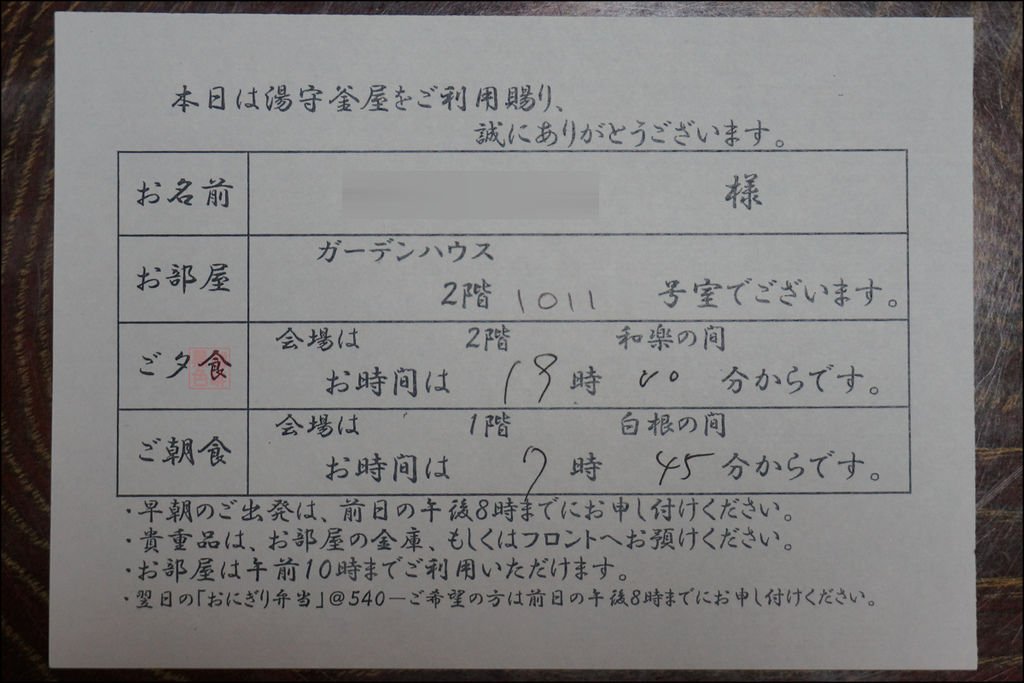 本日は湯守釜屋をご利用賜り、
誠にありがとうございます。
お名前 様
お部屋 ガーデンハウス
2階 1011 号室でございます。
ご夕食 会場は 2階 和楽の間
お時間は 19時 00 分からです。
ご朝食 会場は 1階 白根の間
お時間は 7時 45分からです。
・早朝のご出発は、前日の午後8時までにお申し付けください。
・貴重品は、お部屋の金庫、もしくはフロントへお預けください。
・お部屋は午前10時までご利用いただけます。
・翌日の「おにぎり弁当」@540―ご希望の方は前日の午後8時までにお申し付けください。